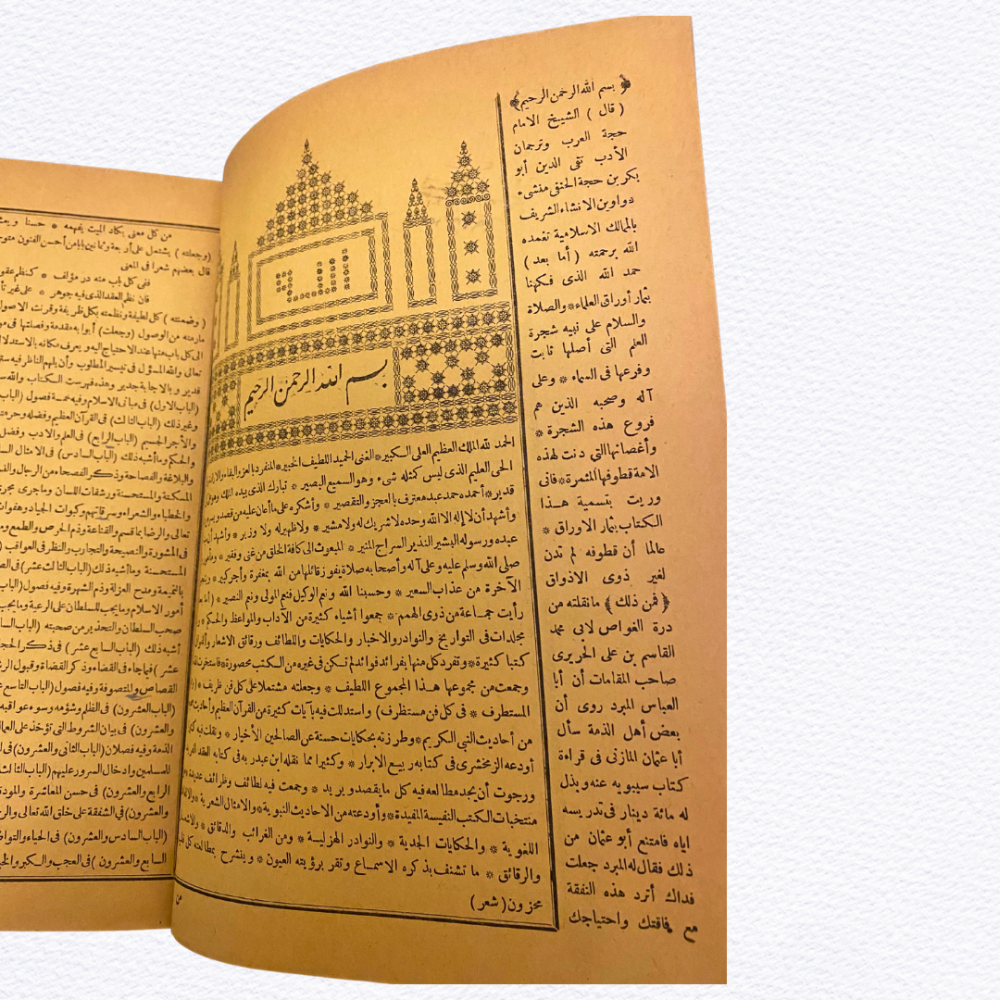 ﴿ بسم الله الرحمن الرحيم ﴾
( قال ) الشيخ الامام
حجة العرب وترجمان
الأدب تقى الدين أبو
بكر بن حجة الحنفى منشىء
دواوين الانشاء الشريف
بالممالك الاسلامية تغمده
الله برحمته ( أما بعد )
حمد الله الذى فكهنا
بثمار أوراق العلماء * والصلاة
والسلام على نبيه شجرة
العلم التى أصلها ثابت
وفرعها فى السماء * وعلى
آله وصحبه الذين هم
فروع هذه الشجرة *
وأغصانها التى دنت لهذه
الامة قطوفها المثمرة * فانى
وريت بتسمية هذا
الكتاب بثمار الاوراق *
عالما أن قطوفه لم تدن
لغير ذوى الاذواق
﴿ فمن ذلك ﴾ ما نقلته من
درة الغواص لابى محمد
القاسم بن على الحريرى
صاحب المقامات أن أبا
العباس المبرد روى أن
بعض أهل الذمة سأل
أبا عثمان المازنى فى قراءة
كتاب سيبويه عنه وبذل
له مائة دينار فى تدريسه
اياه فامتنع أبو عثمان من
ذلك فقال له المبرد جعلت
فداك أترد هذه النفقة
مع فاقتك واحتياجك
بسم الله الرحمن الرحيم
الحمد لله الملك العظيم العلى الكبير * الغنى الحميد اللطيف الخبير * المنفرد بالعز والبقاء والارادة
الحى العليم الذى ليس كمثله شىء وهو السميع البصير * تبارك الذى بيده الملك وهو
قدير * أحمده حمد عبد معترف بالعجز والتقصير * وأشكره على ما أعان عليه من قصد
وأشهد أن لا إله الا الله وحده لا شريك له ولا مشير * ولا ظهير له ولا وزير * وأشهد أن
عبده ورسوله البشير النذير السراج المنير * المبعوث الى كافة الخلق من غنى وفقير *
صلى الله وسلم عليه وعلى آله وأصحابه صلاة يفوز قائلها من الله بمغفرة وأجر كبير *
الآخرة من عذاب السعير * وحسبنا الله ونعم الوكيل فنعم المولى ونعم النصير *
رأيت جماعة من ذوى الهمم * جمعوا أشياء كثيرة من الآداب والمواعظ والحكم *
مجلدات فى التواريخ والنوادر والاخبار والحكايات واللطائف ورقائق الاشعار
كتبا كثيرة * وتفرد كل منها بفرائد فوائد لم تكن فى غيره من الكتب محصورة *
وجمعت من مجموعها هذا المجموع اللطيف * وجعلته مشتملا على كل فن ظريف *
المستطرف * فى كل فن مستظرف ) واستدللت فيه بآيات كثيرة من القرآن العظيم
من أحاديث النبى الكريم * وطرزته بحكايات حسنة عن الصالحين الأخيار * ونقلت فيه
أودعه الزمخشرى فى كتابه ربيع الابرار * وكثيرا مما نقله ابن عبد ربه فى كتابه العقد
ورجوت أن يجد مطالعه فيه كل ما يقصد ويريد * وجمعت فيه لطائف وظرائف عديدة
منتخبات الكتب النفيسة المفيدة * وأودعته من الاحاديث النبوية * والامثال الشعرية *
اللغوية * والحكايات الجدية * والنوادر الهزلية * ومن الغرائب والدقائق *
والرقائق * ما تشنف بذكره الاسماع وتقر برؤيته العيون * وينشرح بمطالعته كل
محزون ( شعر )
من كل معنى يكاد الميت يفهمه * حسنا
( وجعلته ) يشتمل على أربعة وثمانين بابا من أحسن الفنون
قال بعضهم شعرا فى المعنى
ففى كل باب منه در مؤلف * كنظم عقود
فان نظم العقد الذى فيه جوهر * على غير
( وضمنته ) كل لطيفة ونظمته بكل ظريفة وقرنت الاصول
الى كل باب منها عند الاحتياج اليه ويعرف مكانه بالاستدلال
تعالى والله المسؤل فى تيسير المطلوب وأن يلهم الناظر فيه
قدير وبالاجابة جدير وهذه فهرست الكتاب والله
( الباب الاول ) فى مبانى الاسلام وفيه خمسة فصول
وغير ذلك ( الباب الثالث ) فى القرآن العظيم وفضله وحرمته
والأجر الجسيم ( الباب الرابع ) فى العلم والادب وفضل
والحكم وما أشبه ذلك ( الباب السادس ) فى الامثال
والبلاغة والفصاحة وذكر الفصحاء من الرجال
المسكتة والمستحسنة ورشقات اللسان وما جرى مجرى
والخطباء والشعراء وسرقاتهم وكبوات الجياد وهفوات
تعالى والرضا بما قسم والقناعة وذم الحرص والطمع
فى المشورة والنصيحة والتجارب والنظر فى العواقب
المستحسنة وما أشبه ذلك ( الباب الثالث عشر ) فى
بالنميمة ومدح العزلة وذم الشهرة وفيه فصول
أمور الاسلام وما يجب للسلطان على الرعية وما يجب
صحب السلطان والتحذير من صحبته
أشبه ذلك ( الباب السابع عشر ) فى ذكر الحجاب
عشر ) فيما جاء فى القضاء وذكر القضاة وقبول
القصاص والمتصوفة وفيه فصول ( الباب التاسع
( الباب العشرون ) فى الظلم وشؤمه وسوء عواقبه
والعشرون ) فى بيان الشروط التى تؤخذ على العمال
الذمة وفيه فصلان ( الباب الثانى والعشرون ) فى
للمسلمين وادخال السرور عليهم ( الباب الثالث
الرابع والعشرون ) فى حسن المعاشرة والمودة
والعشرون ) فى الشفقة على خلق الله تعالى
( الباب السادس والعشرون ) فى الحياء والتواضع
السابع والعشرون ) فى العجب والكبر